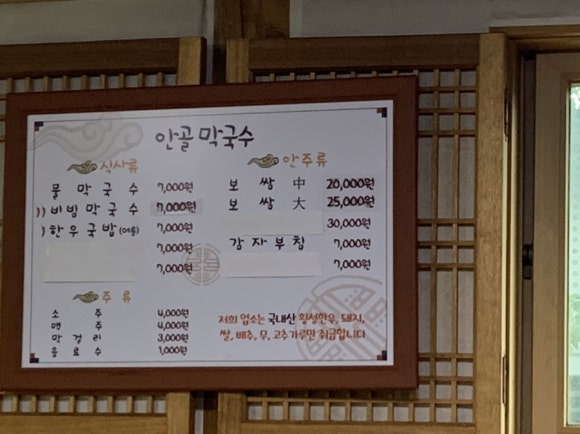 안골막국수
식사류
물 막 국 수 7,000원
비빔막국수 7,000원
한우국밥(여름) 7,000원
7,000원
7,000원
주 류
소 주 4,000원
맥 주 4,000원
막 걸 리 3,000원
음 료 수 1,000원
안주류
보 쌈 中 20,000원
보 쌈 大 25,000원
30,000원
감자부침 7,000원
7,000원
저희 업소는 국내산 횡성한우, 돼지,
쌀, 배추, 무, 고추가루만 취급합니다